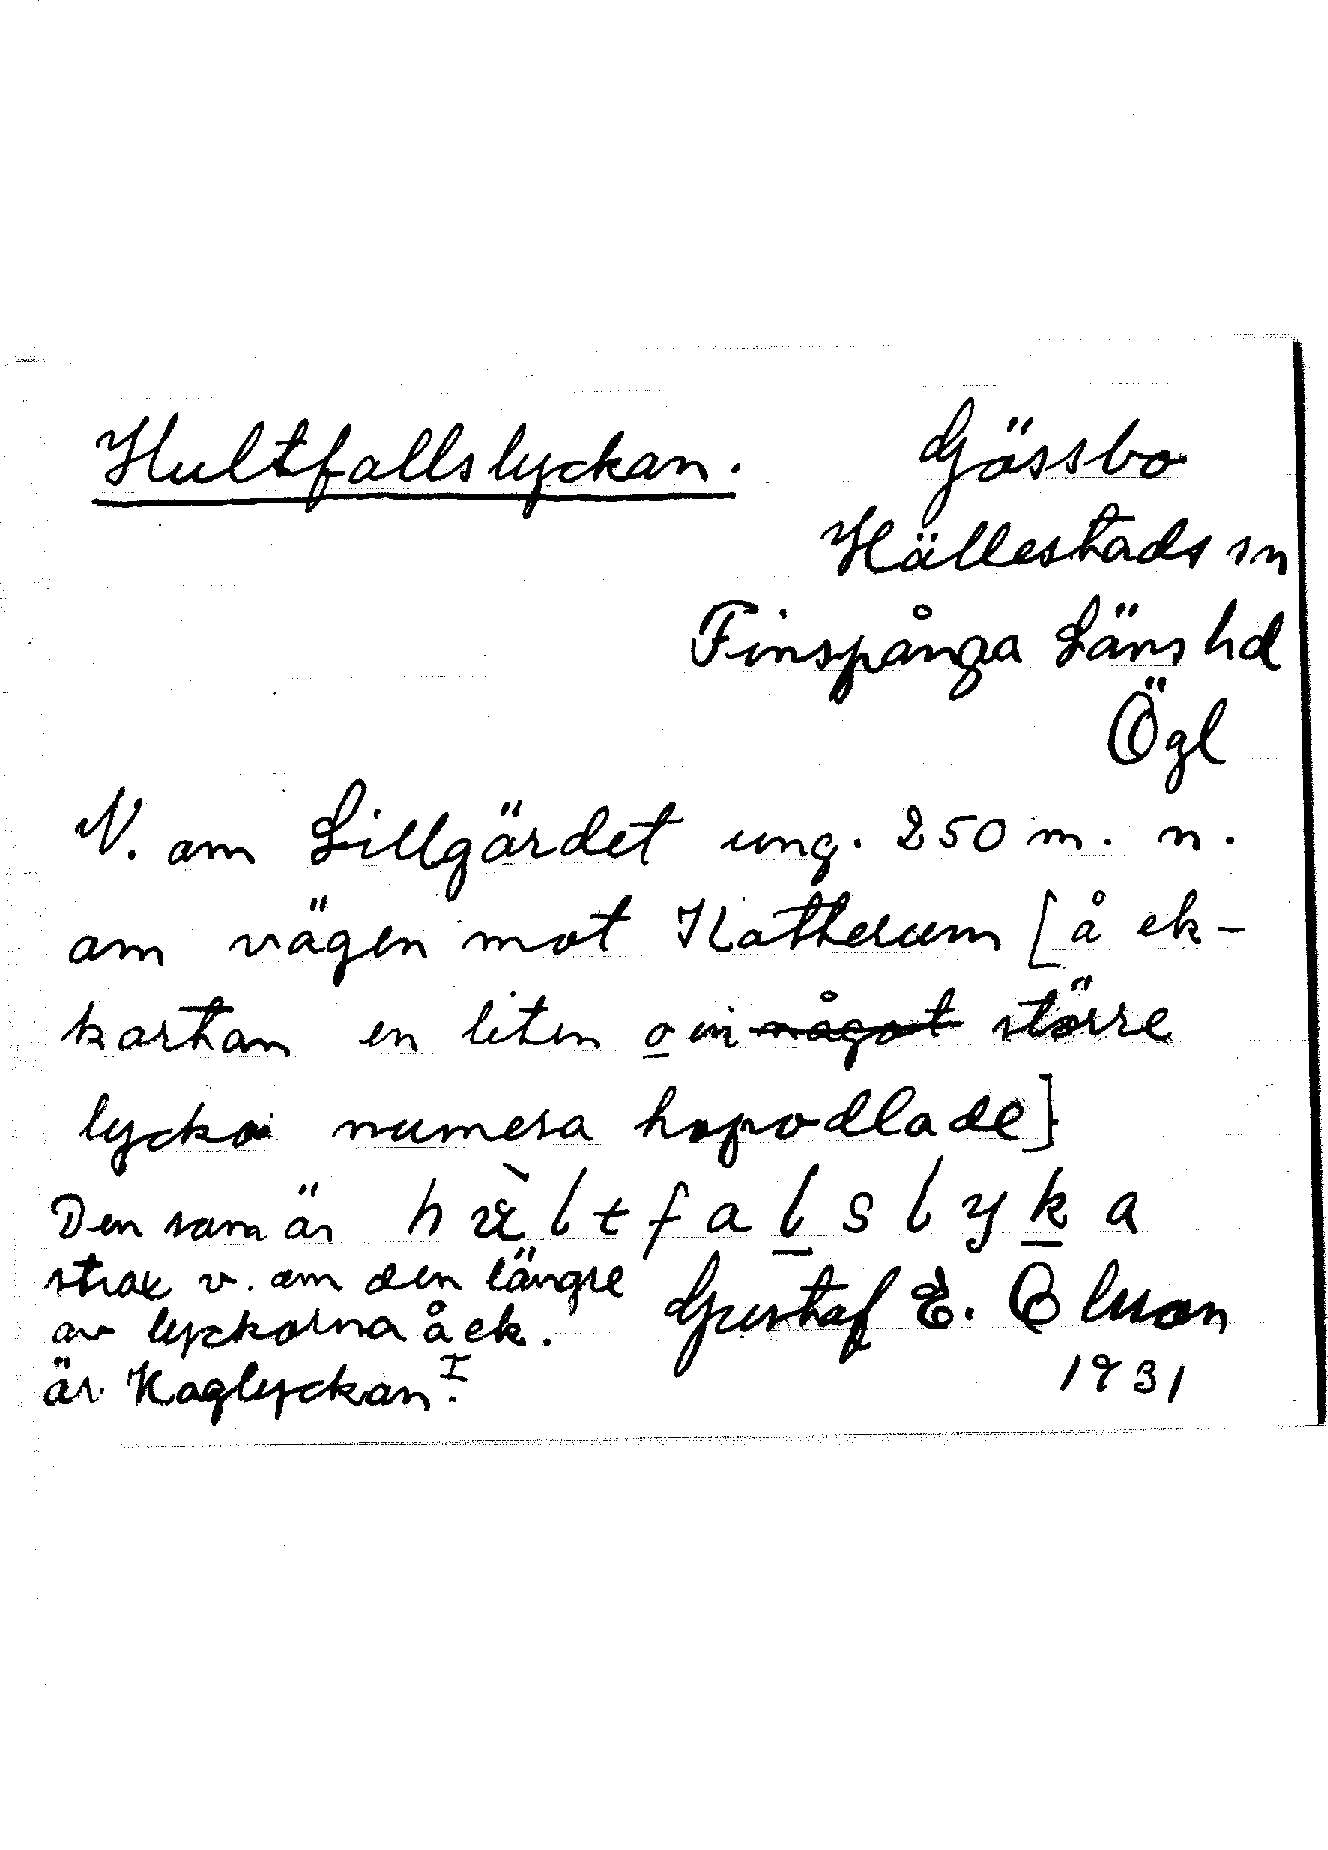 Hultfallslyckan.
Gässbo
Hällestads sn
Finspånga Läns hd
Ögl
N. om Lillgärdet ung. 250 m. n.
om vägen mot Katherum [å ek-
kartan en liten o en något större
lycka numera hopodlade]
Den som är
strax v. om den längre
av lyckorna å ek.
är Kaglyckan I.
Gustaf E. Olsson
1931